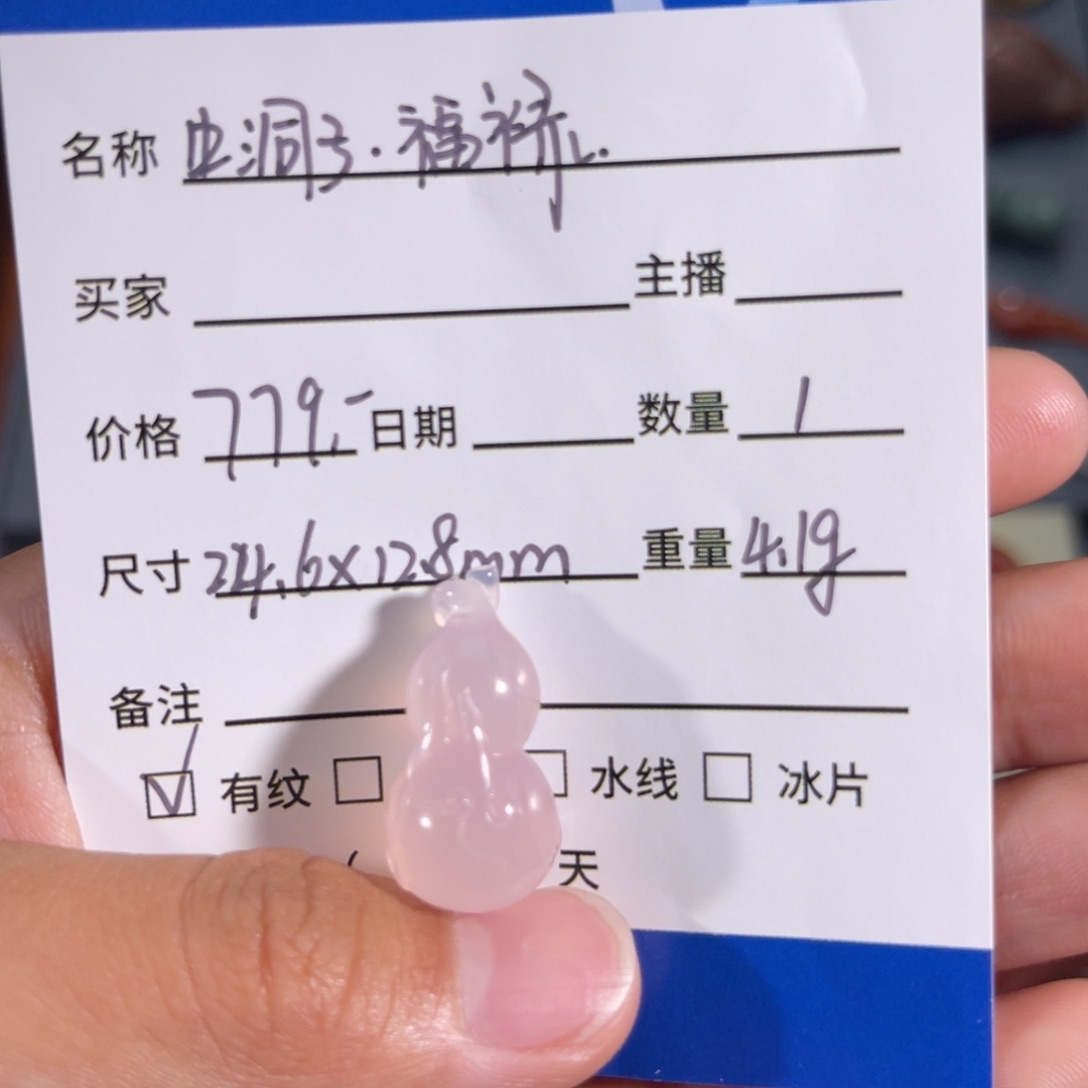 名称 虫洞子.福禄.
买家 主播
价格 779.- 日期 数量 1
尺寸 24.6x12.8mm 重量 4.1g
备注
有纹 水线 冰片
天